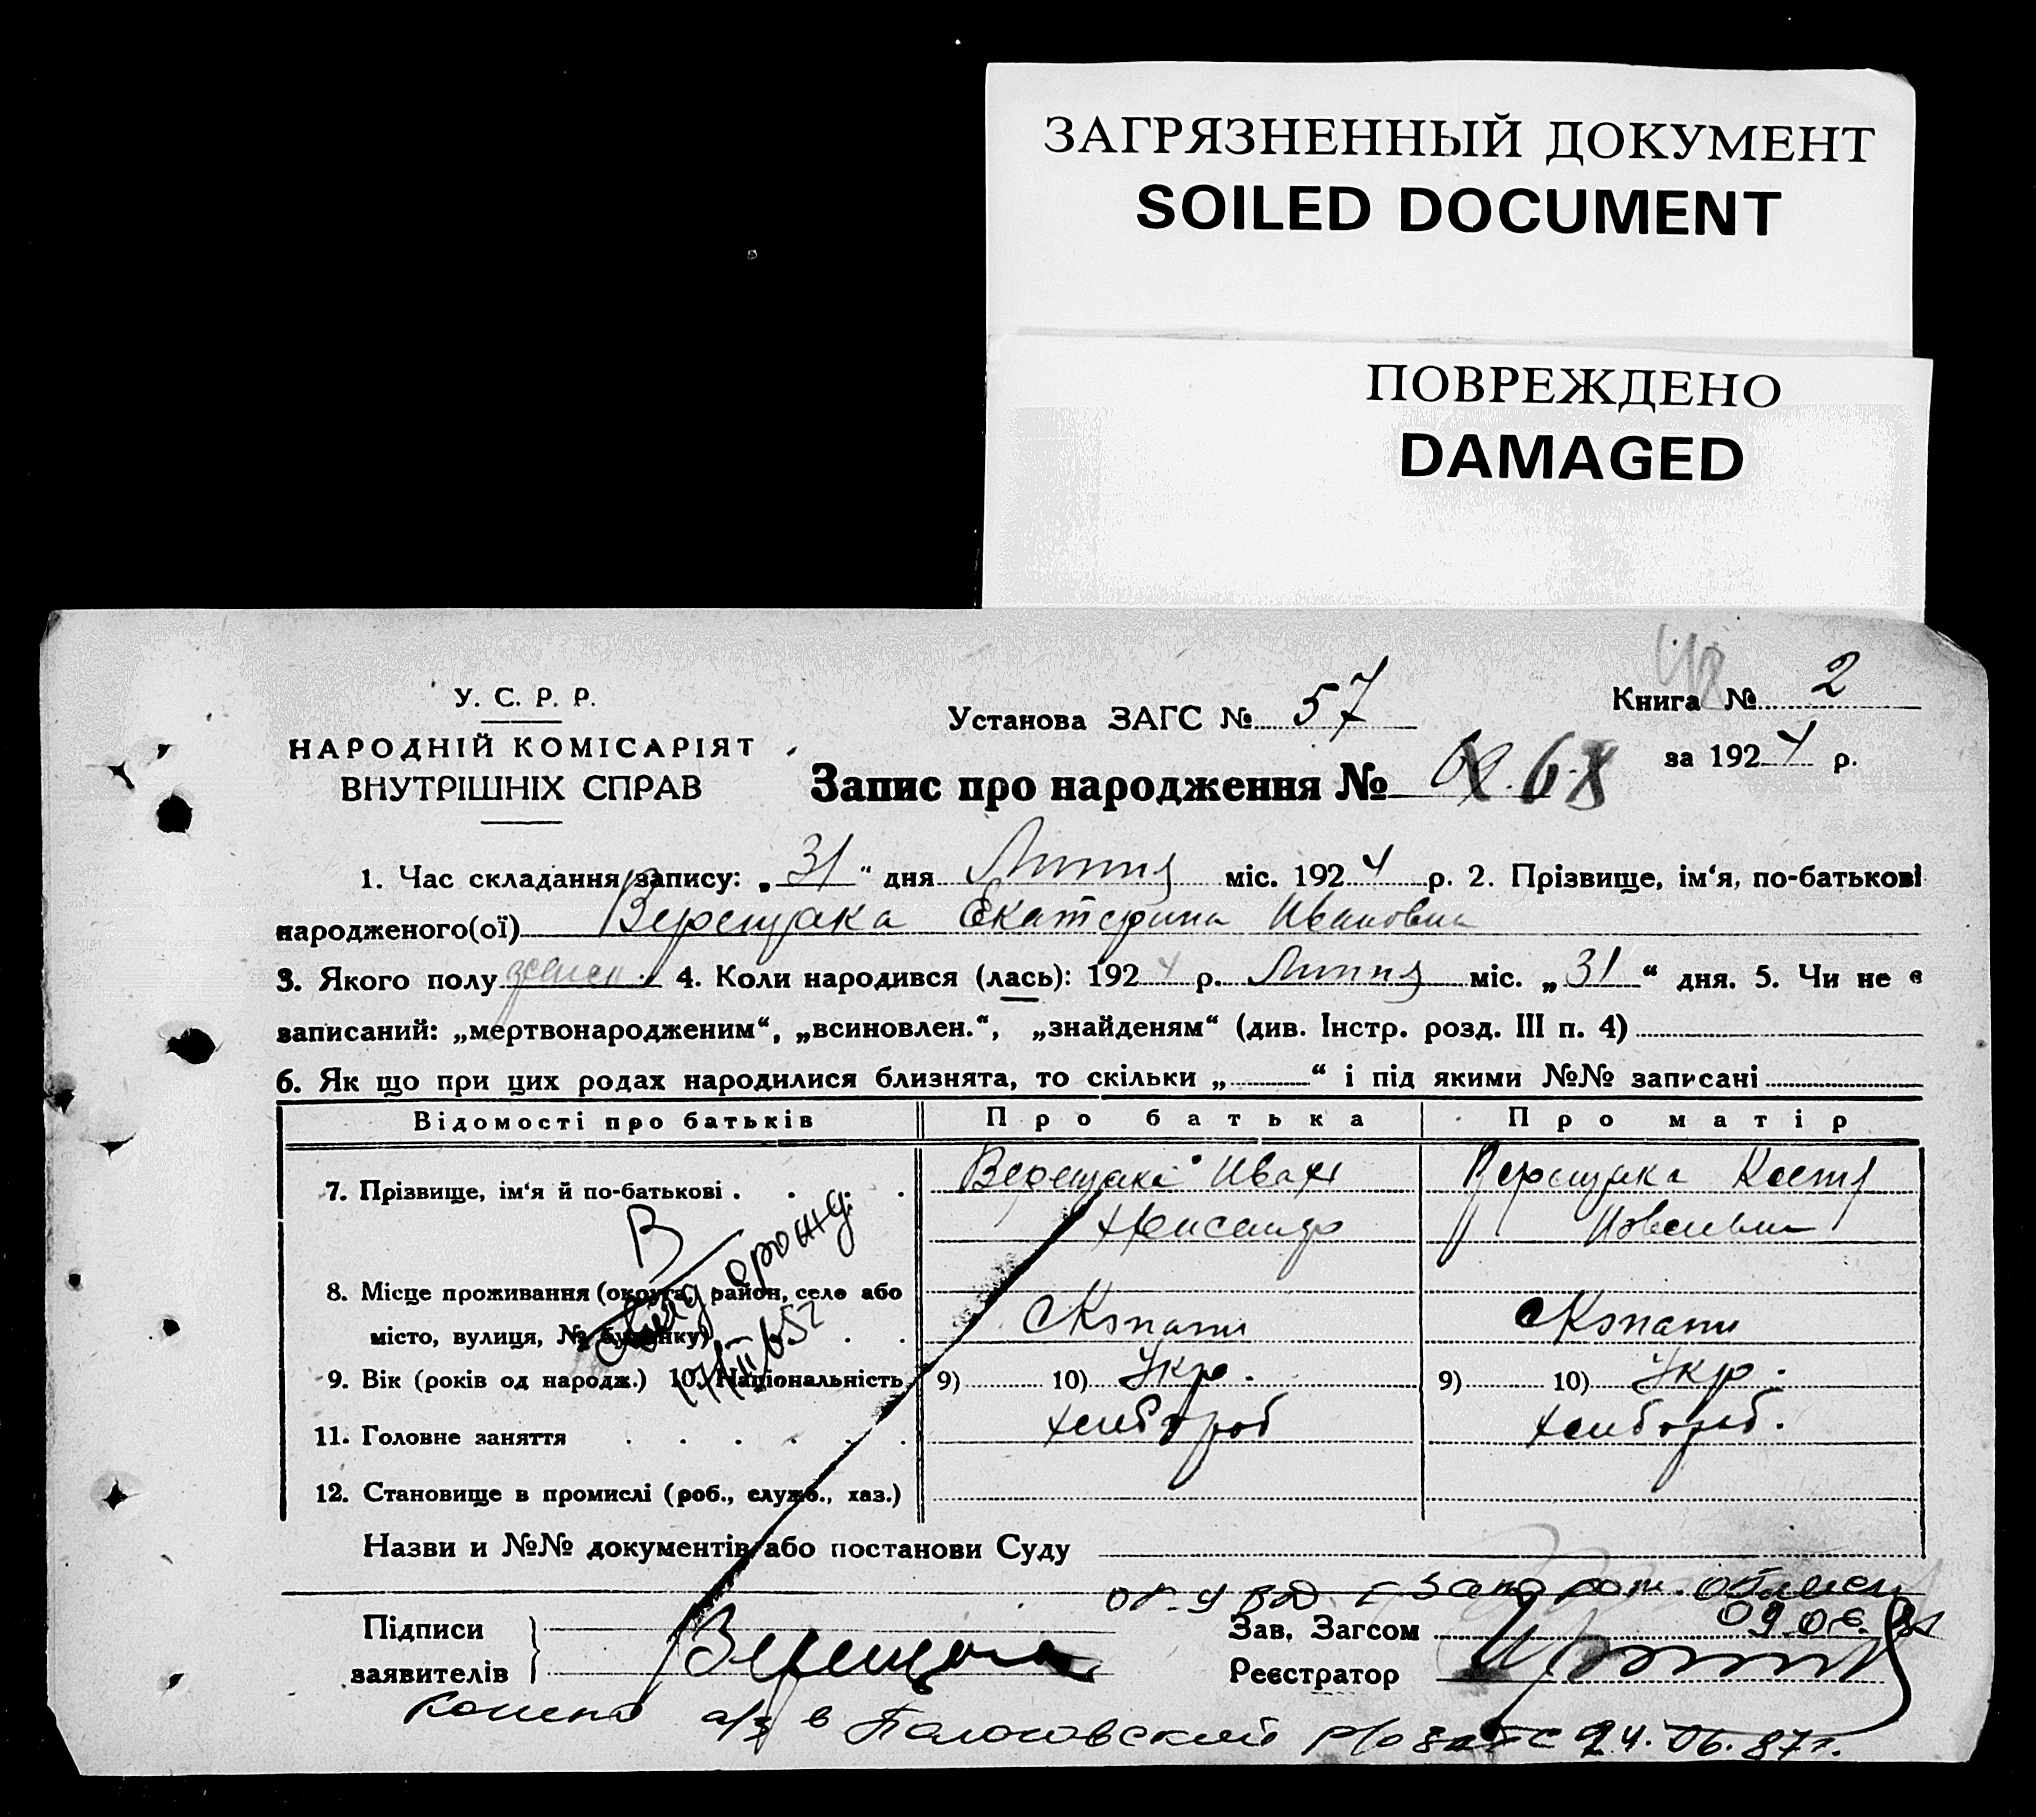 ЗАГРЯЗНЕННЫЙ ДОКУМЕНТ
SOILED DOCUMENT
ПОВРЕЖДЕНО
DAMAGED
У. С. Р. Р.
НАРОДНІЙ КОМІСАРІЯТ
ВНУТРІШНІХ СПРАВ
Установа ЗАГС № 57
Книга № 2
за 1924 р.
Запис про народження № 68
1. Час складання запису: „31“ дня Липня міс. 1924 р. 2. Прізвище, ім‘я, по-батькові
народженого(ої) Верещака Екатерина Ивановна
3. Якого полу женск. 4. Коли народився (лась): 1924 р. Липня міс. „31“ дня. 5. Чи не є
записаний: „мертвонародженим“, „всиновлен.“, „знайденям“ (див. Інстр. розд. III п. 4)
6. Як що при цих родах народилися близнята, то скільки „ “ і під якими №№ записані
Відомості про батьків Про батька Про матір
7. Прізвище, ім‘я й по-батькові . . . . Верещака Иван Верещака
В
8. Місце проживання (округа, район, село або
місто, вулиця, № будинку) . .
9. Вік (років од народж.) 10. Національність 9) 10) Укр. 9) 10) Укр.
11. Головне заняття . . . . . . хлібороб хлібороб.
12. Становище в промислі (роб., служб., хаз.)
Назви и №№ документів або постанови Суду
Підписи
заявителів
Верещака
Зав. Загсом
Реєстратор
а/з в Пологовский р/о загс 24.06.87г.